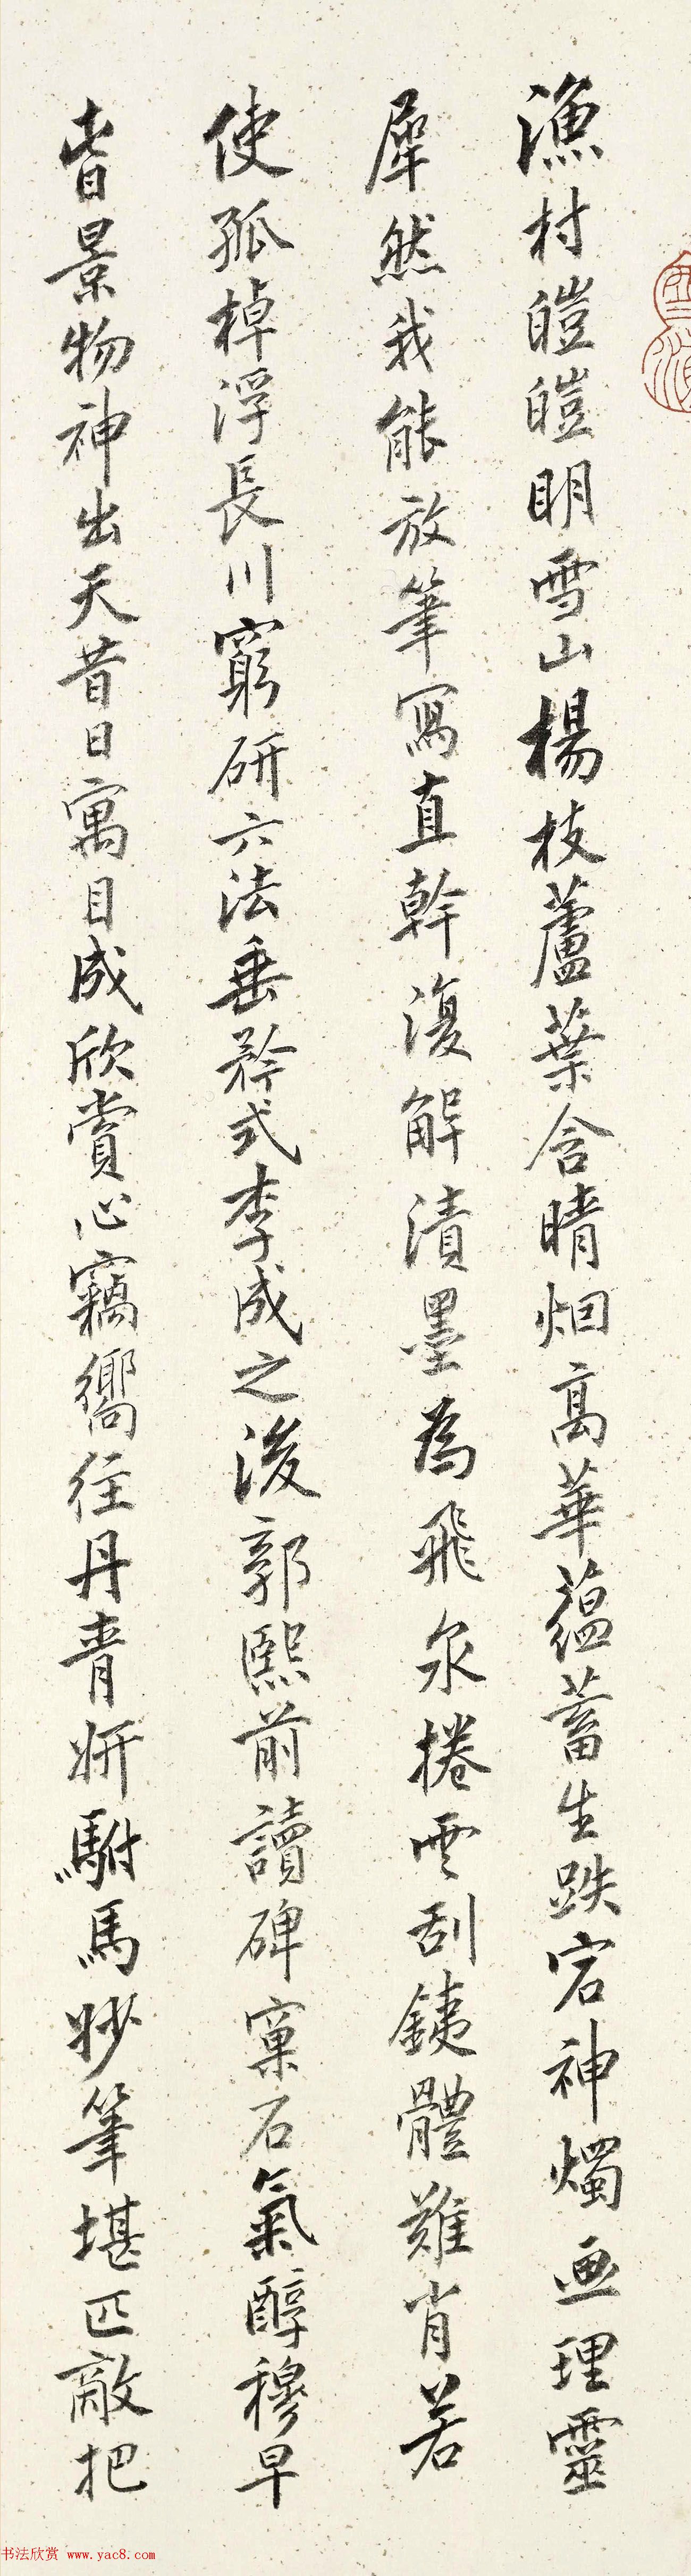 漁村皚皚明雪山楊枝蘆葉含晴烟高華蘊蓄生跌宕神燭畫理靈
犀然我能放筆寫直幹復解漬墨為飛泉捲雲刮鐵體難肖若
使孤棹浮長川窮研六法垂矜式李成之後郭熙前讀碑窠石氣醇穆早
春景物神出天昔日寓目成欣賞心竊嚮往丹青妍駙馬妙筆堪匹敵把
书法欣赏 www.yac8.com